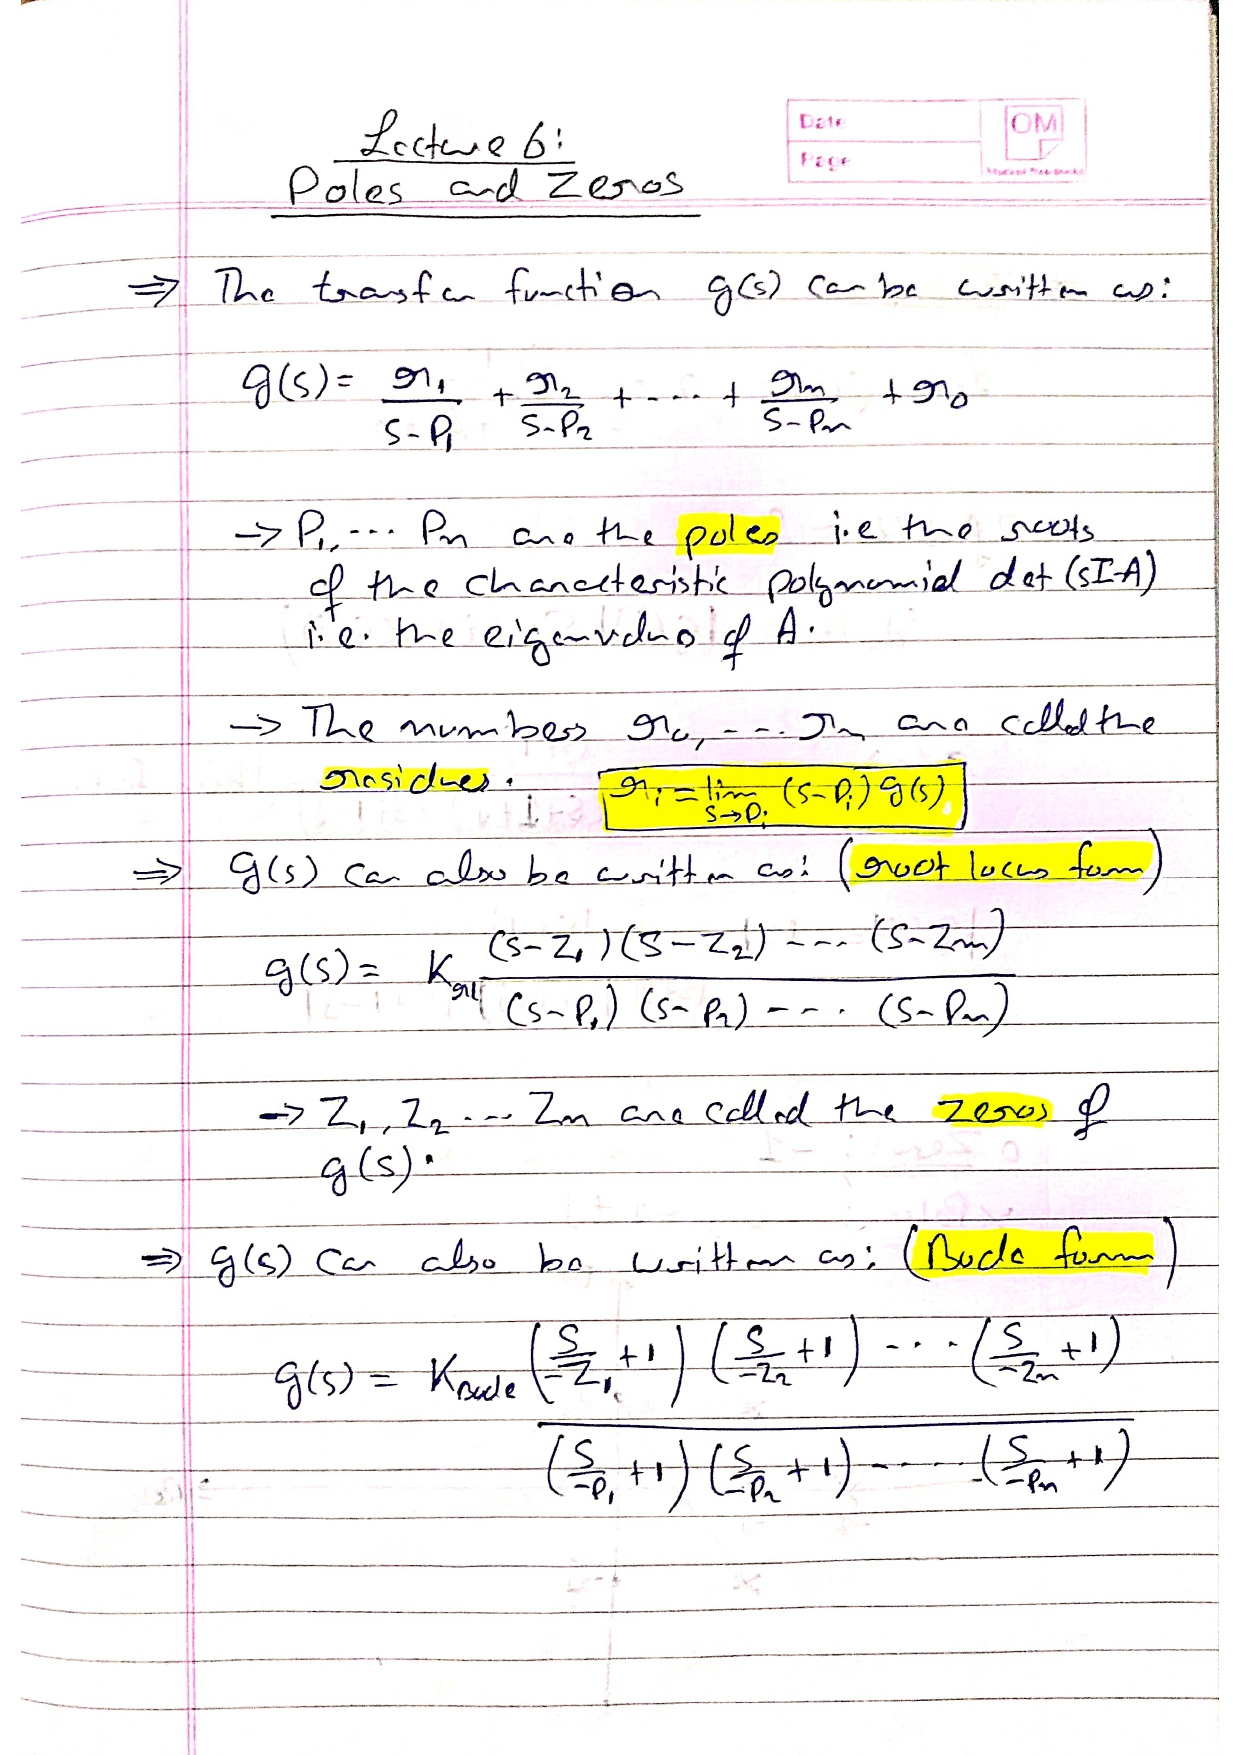 Lecture 6:
Poles and Zeros
Date
Page
OM
⇒ The transfer function g(s) can be written as:
g(s) = r₁/(s-p₁) + r₂/(s-p₂) + - - - - + rₙ/(s-pₙ) + r₀
→ P₁, - - - Pₙ are the poles i.e the roots
of the characteristic polynomial det (sI-A)
i.e. the eigenvalues of A.
→ The numbers r₀, - - - rₙ are called the
residues. rᵢ = lim s→pᵢ (s-pᵢ) g(s)
⇒ g(s) can also be written as: (root locus form)
g(s) = K_rl (s-z₁)(s-z₂) - - - - (s-zₘ) / (s-p₁)(s-p₂) - - - . (s-pₙ)
→ z₁, z₂ - - - zₘ are called the zeros of
g(s).
⇒ g(s) can also be written as: (Bode form)
g(s) = K_Bode (s/-z₁ + 1) (s/-z₂ + 1) - - - - (s/-zₘ + 1) / (s/-p₁ + 1) (s/-p₂ + 1) - - - - - (s/-pₙ + 1)